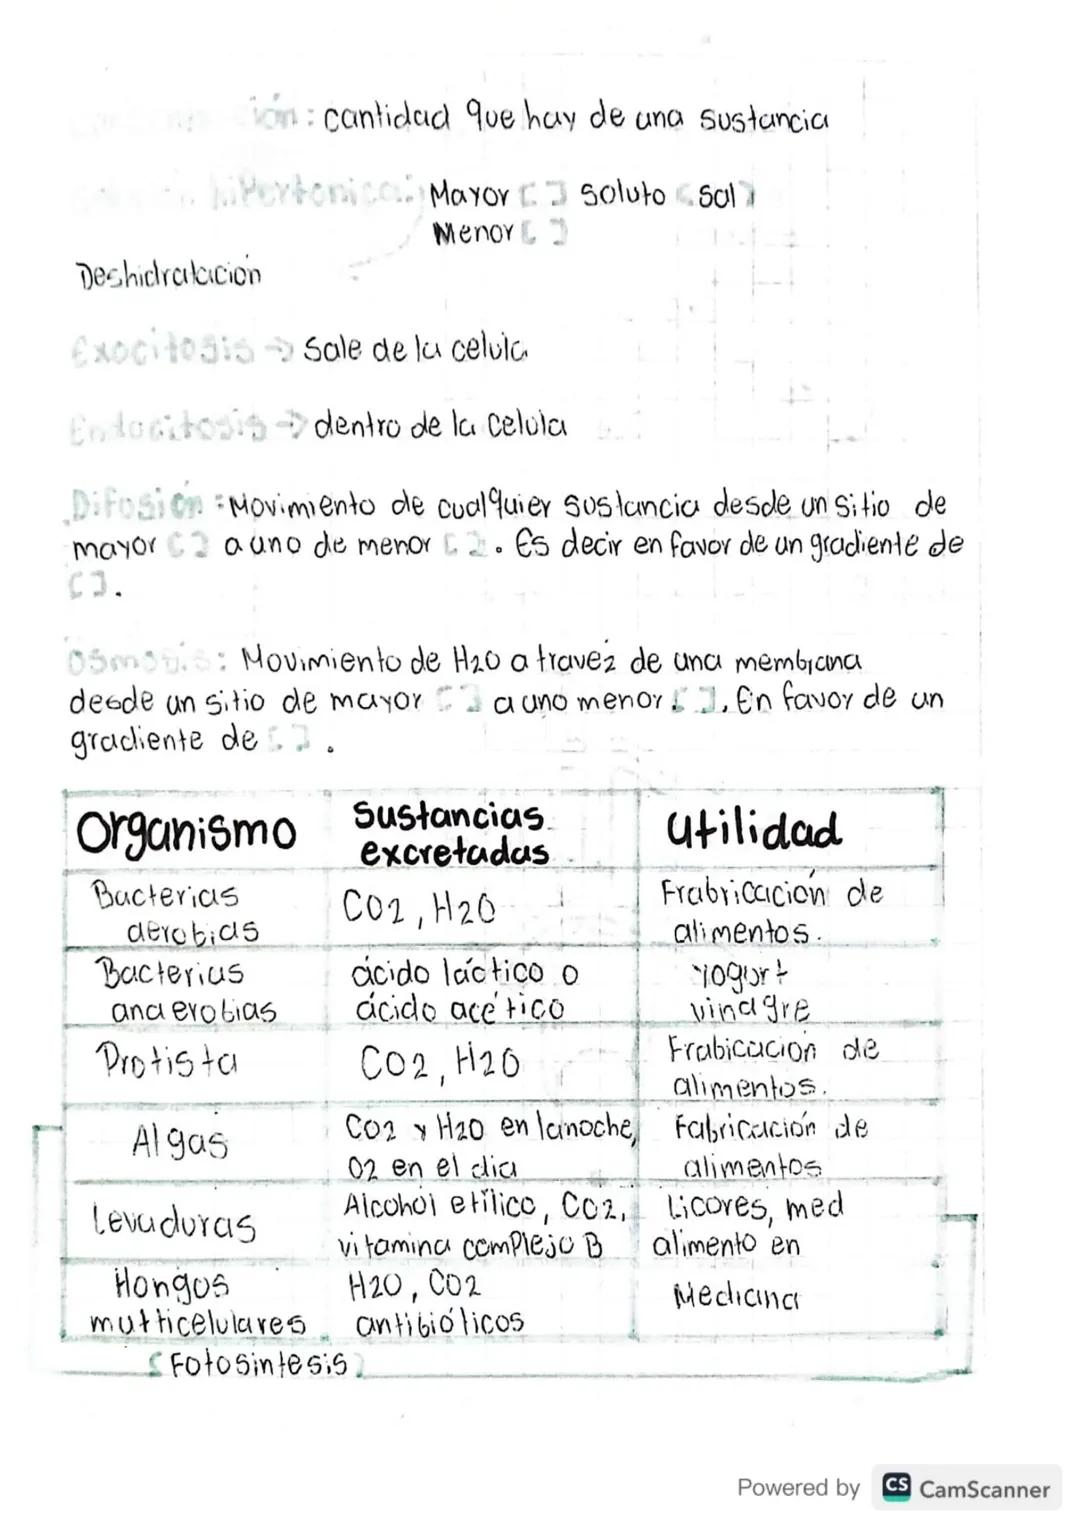 ión: cantidad que hay de una sustancia
hipertonica: Mayor [ ] soluto (sal)
Menor [ ]
Deshidratación
Exocitosis → Sale de la celula
Endocitosis → dentro de la celula
Difusión: Movimiento de cualquier sustancia desde un sitio de
mayor [ ] a uno de menor [ ]. Es decir en favor de un gradiente de
[ ].
Osmosis: Movimiento de H2O a travéz de una membrana
desde un sitio de mayor [ ] a uno menor [ ]. En favor de un
gradiente de [ ].
Organismo Sustancias Utilidad
excretadas
Bacterias aerobias CO2, H2O Frabricación de alimentos.
Bacterias anaerobias ácido láctico o ácido acético Yogurt vinagre
Protista CO2, H2O Frabicación de alimentos.
Algas CO2 y H2O en la noche, O2 en el dia Fabricación de alimentos
Levaduras Alcohol etílico, CO2, vitamina complejo B Licores, med alimento en
Hongos multicelulares H2O, CO2 antibióticos Medicina
[Fotosintesis]
Powered by CS CamScanner